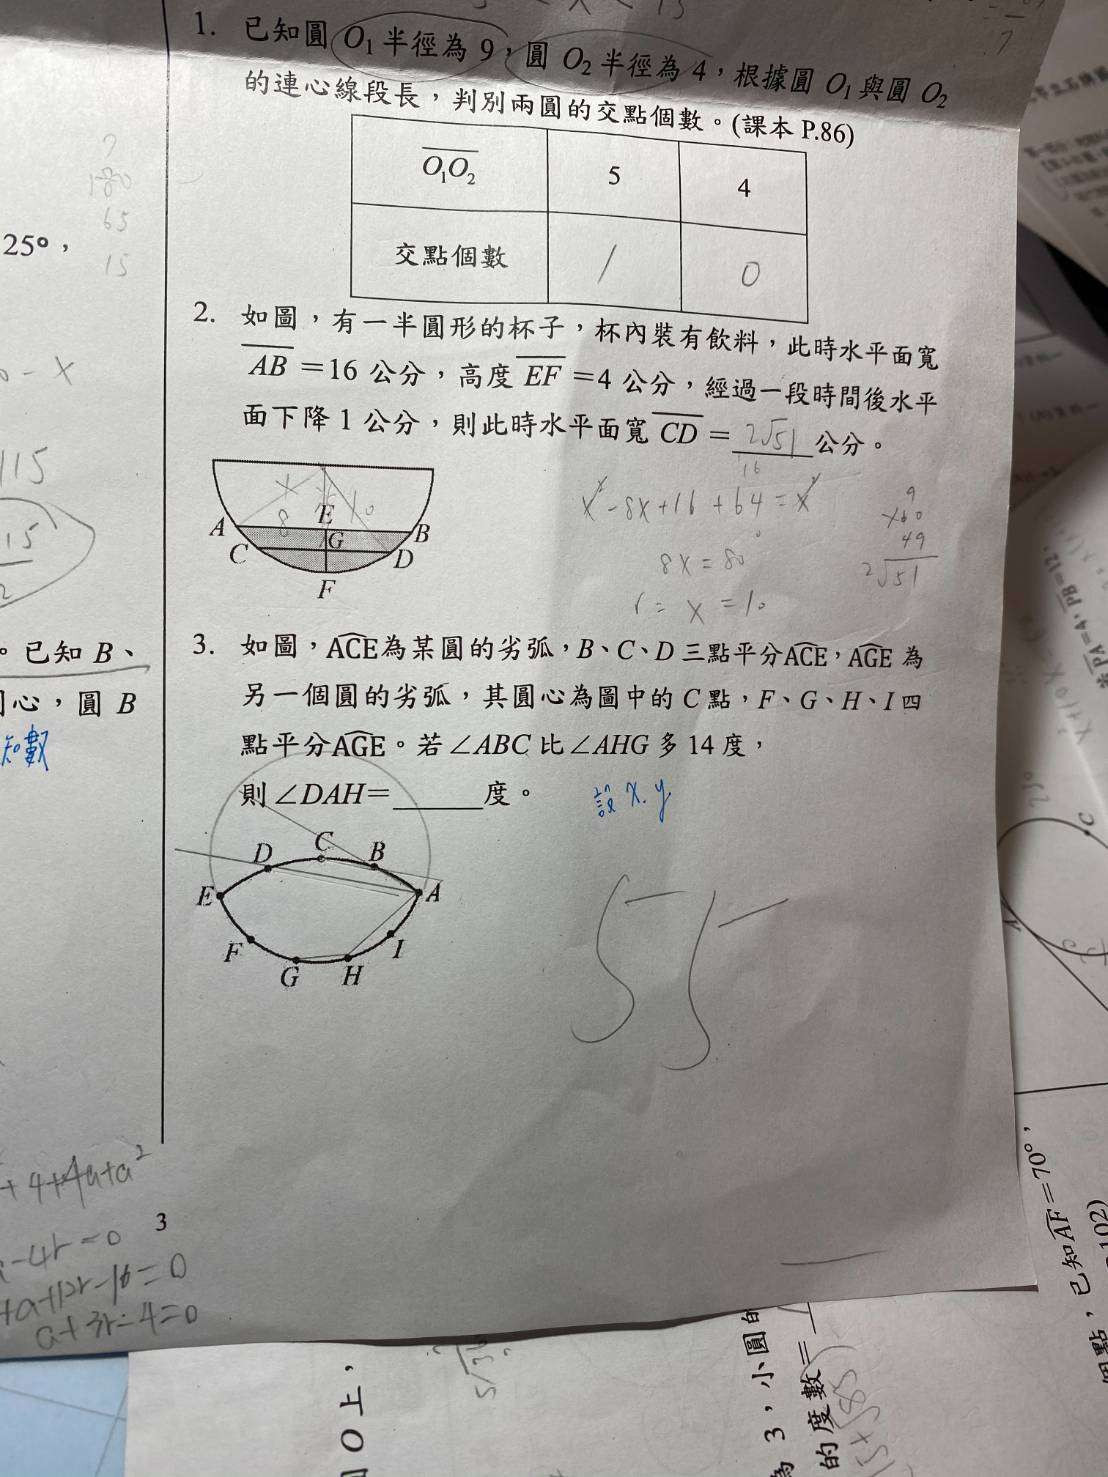 1. 已知圓 O₁ 半徑為 9，圓 O₂ 半徑為 4，根據圓 O₁ 與圓 O₂
的連心線段長，判別兩圓的交點個數。(課本 P.86)
O₁O₂ 5 4
交點個數 1 0
2. 如圖，有一半圓形的杯子，杯內裝有飲料，此時水平面寬
AB =16 公分，高度 EF =4 公分，經過一段時間後水平
面下降 1 公分，則此時水平面寬 CD = 2√51 公分。
16
x² -8x+16 +64 = x²
8x = 80
r = x = 10
49
2√51
x 10
8 E
A B
G
C D
F
3. 如圖，ACE為某圓的劣弧，B、C、D 三點平分ACE，AGE 為
另一個圓的劣弧，其圓心為圖中的 C 點，F、G、H、I 四
點平分AGE。若∠ABC 比∠AHG 多 14 度，
則∠DAH=______度。
設 x.y
D C B
E A
F I
G H
3
180
65
15
25°，
115
15
2
。已知 B、
心，圓 B
知數
+4+4a+a²
-4r=0
+a+12r-16=0
a+3r-4=0
O 上，
3，小圓的
的度數=
點，已知AF=70°，
102)
PA=4，PB=12，
C